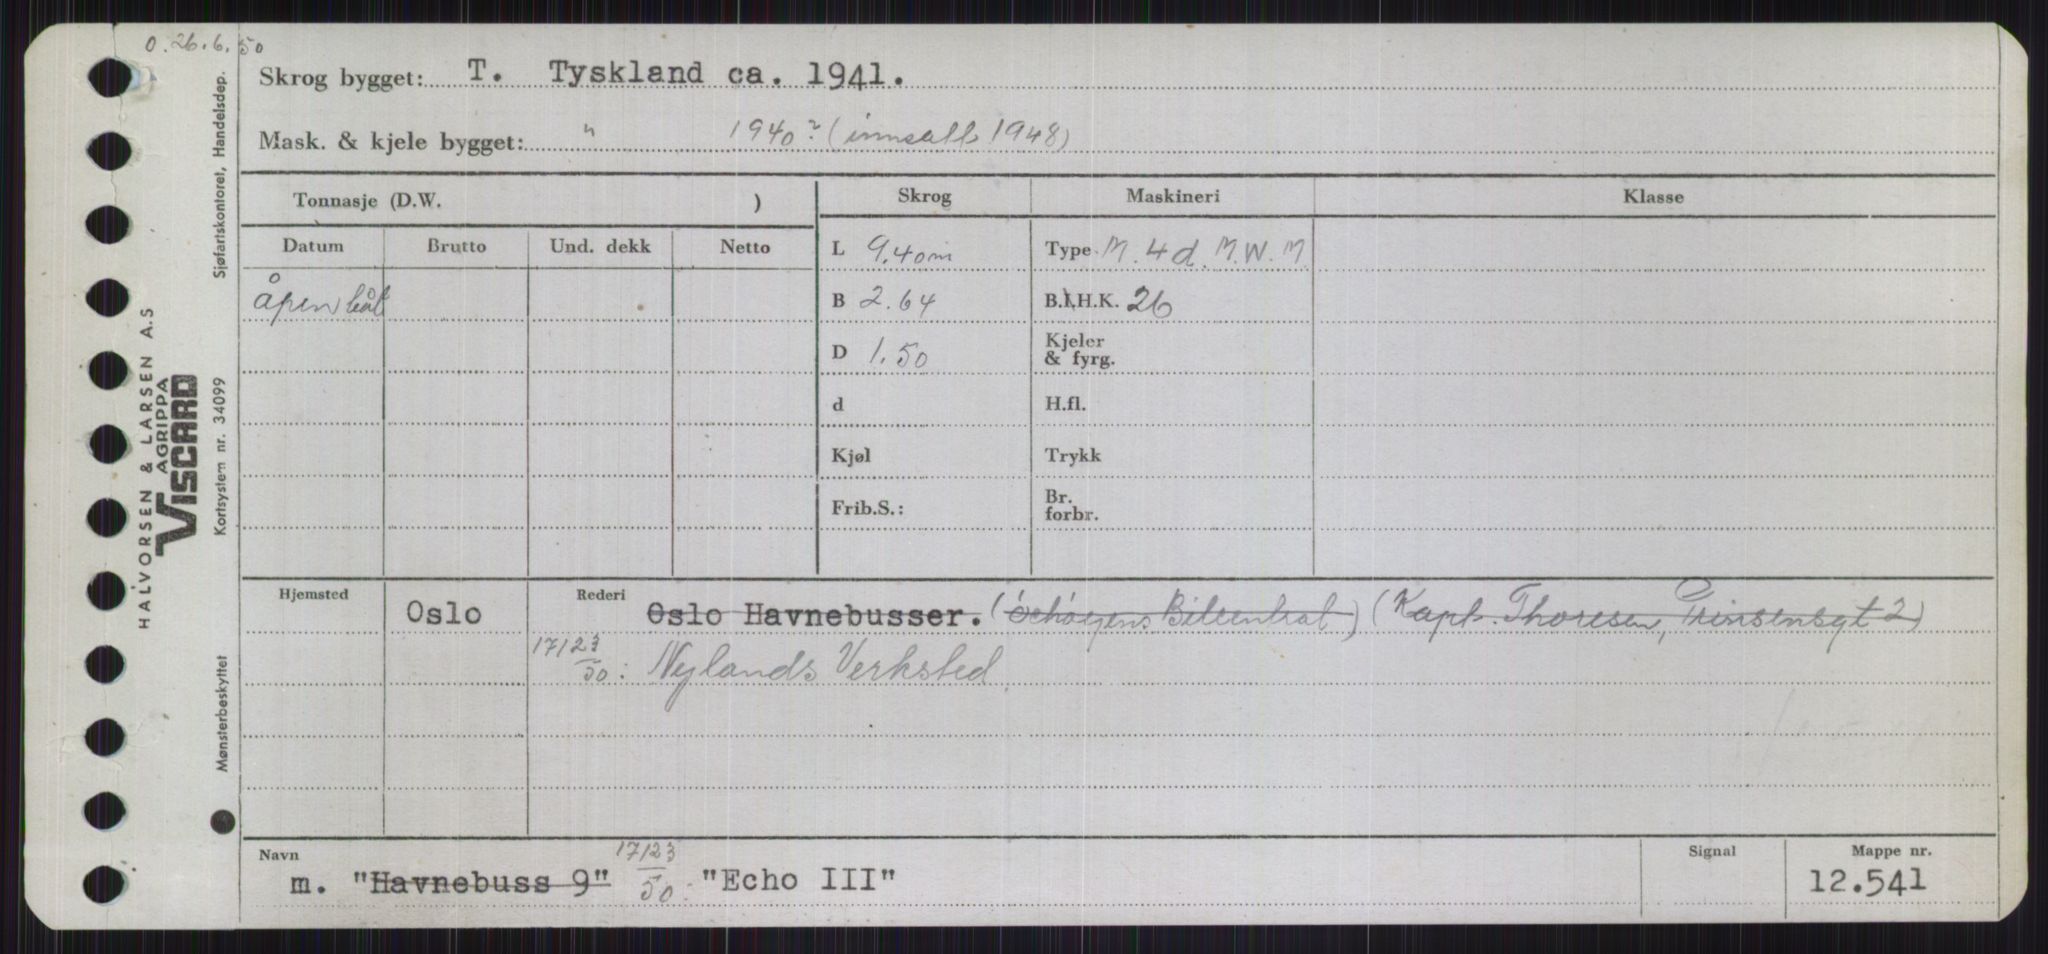 O. 26.6.50
Skrog bygget: T. Tyskland ca. 1941.
Mask. & kjele bygget: " 1940? (innsatt 1948)
Tonnasje (D.W. )
Skrog
Maskineri
Klasse
Datum
Brutto
Und. dekk
Netto
L 9.40m
Type M. 4d. M.W.M
åpen båt
B 2.64
B.I.H.K. 26
D 1.50
Kjeler
& fyrg.
d
H.fl.
Kjøl
Trykk
Frib.S.:
Br.
forbr.
Hjemsted
Oslo
Rederi
Oslo Havnebusser. (Schøyens Bilcentral) (Kapt. Thoresen, Prinsensgt 2)
17/23/50: Nylands Verksted.
Navn
m. "Havnebuss 9" 17/23/50: "Echo III"
Signal
Mappe nr.
12.541
HALVORSEN & LARSEN A.S
AGRIPPA
VISCARD
Sjøfartskontoret, Handelsdep.
Kortsystem nr. 34099
Mønsterbeskyttet